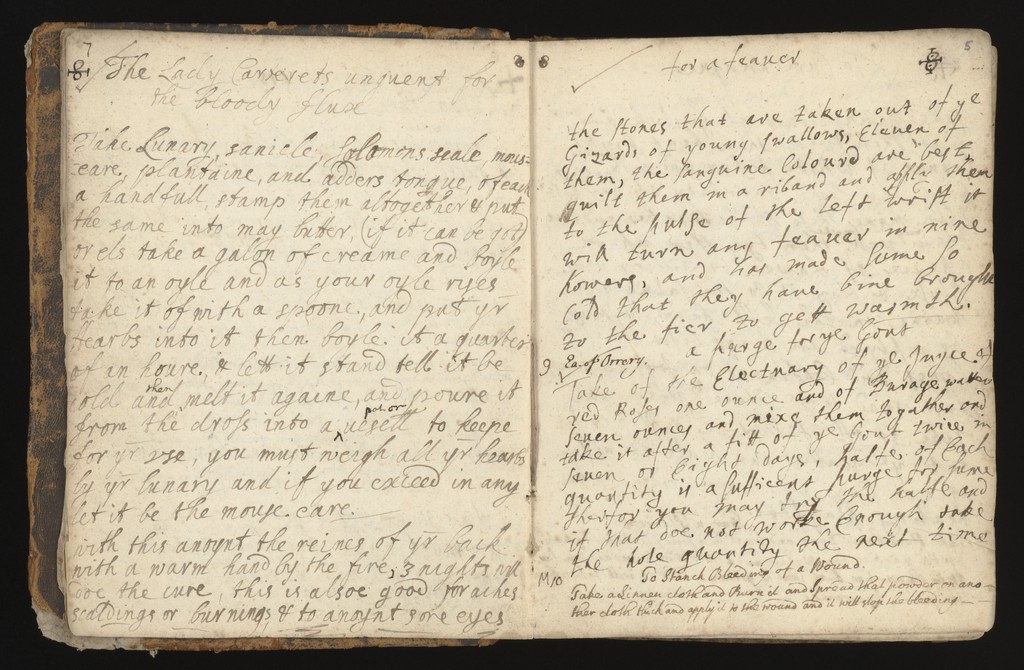 7
8 The Lady Carterets unguent for
the bloody flux
Take Lunary, sanicle, Solomons seale, mous=
eare, plantaine, and adders tongue, of each
a handfull, stamp them altogether & put
the same into may butter, (if it can be got)
or els take a galon of creame and boyle
it to an oyle and as your oyle ryses
take it of with a spoone, and put yr
hearbs into it then boyle it a quarter
of an houre, & lett it stand tell it be
cold and then melt it againe, and poure it
from the dross into a pot or vesell to keepe
for yr use, you must weigh all yr hearbs
by yr lunary and if you exceed in any
let it be the mouse eare.
with this anoynt the reines of yr back
with a warm hand by the fire, 3 nights will
doe the cure, this is alsoe good for aches
scaldings or burnings & to anoynt sore eyes
5
for a feaver 8
the stones that are taken out of ye
Gizards of young swallows, Eleven of
them, the sanguine Coloured are best,
quilt them in a riband and apply them
to the pulse of the left wrist it
will turn any feaver in nine
howers, and has made sume so
Cold that they have bine brought
to the fier to gett warmth.
a purge for ye Gout
9 Ea. of Orrery.
Take of the Electuary of ye Juyce of
red Roses one ounce and of Burage watter
seven ounces and mixe them together and
take it after a fitt of ye Gout twice in
seven or Eight days, halfe of Each
quantity is a sufficent purge for sume
therfor you may try the halfe and
if that doe not worke Enough take
the hole quantity the next time
10 To Stanch Bleeding of a Wound.
Take a Linnen cloth and Burn it and Spread that powder on ano-
ther cloth thick and apply it to the wound and it will stop the bleeding